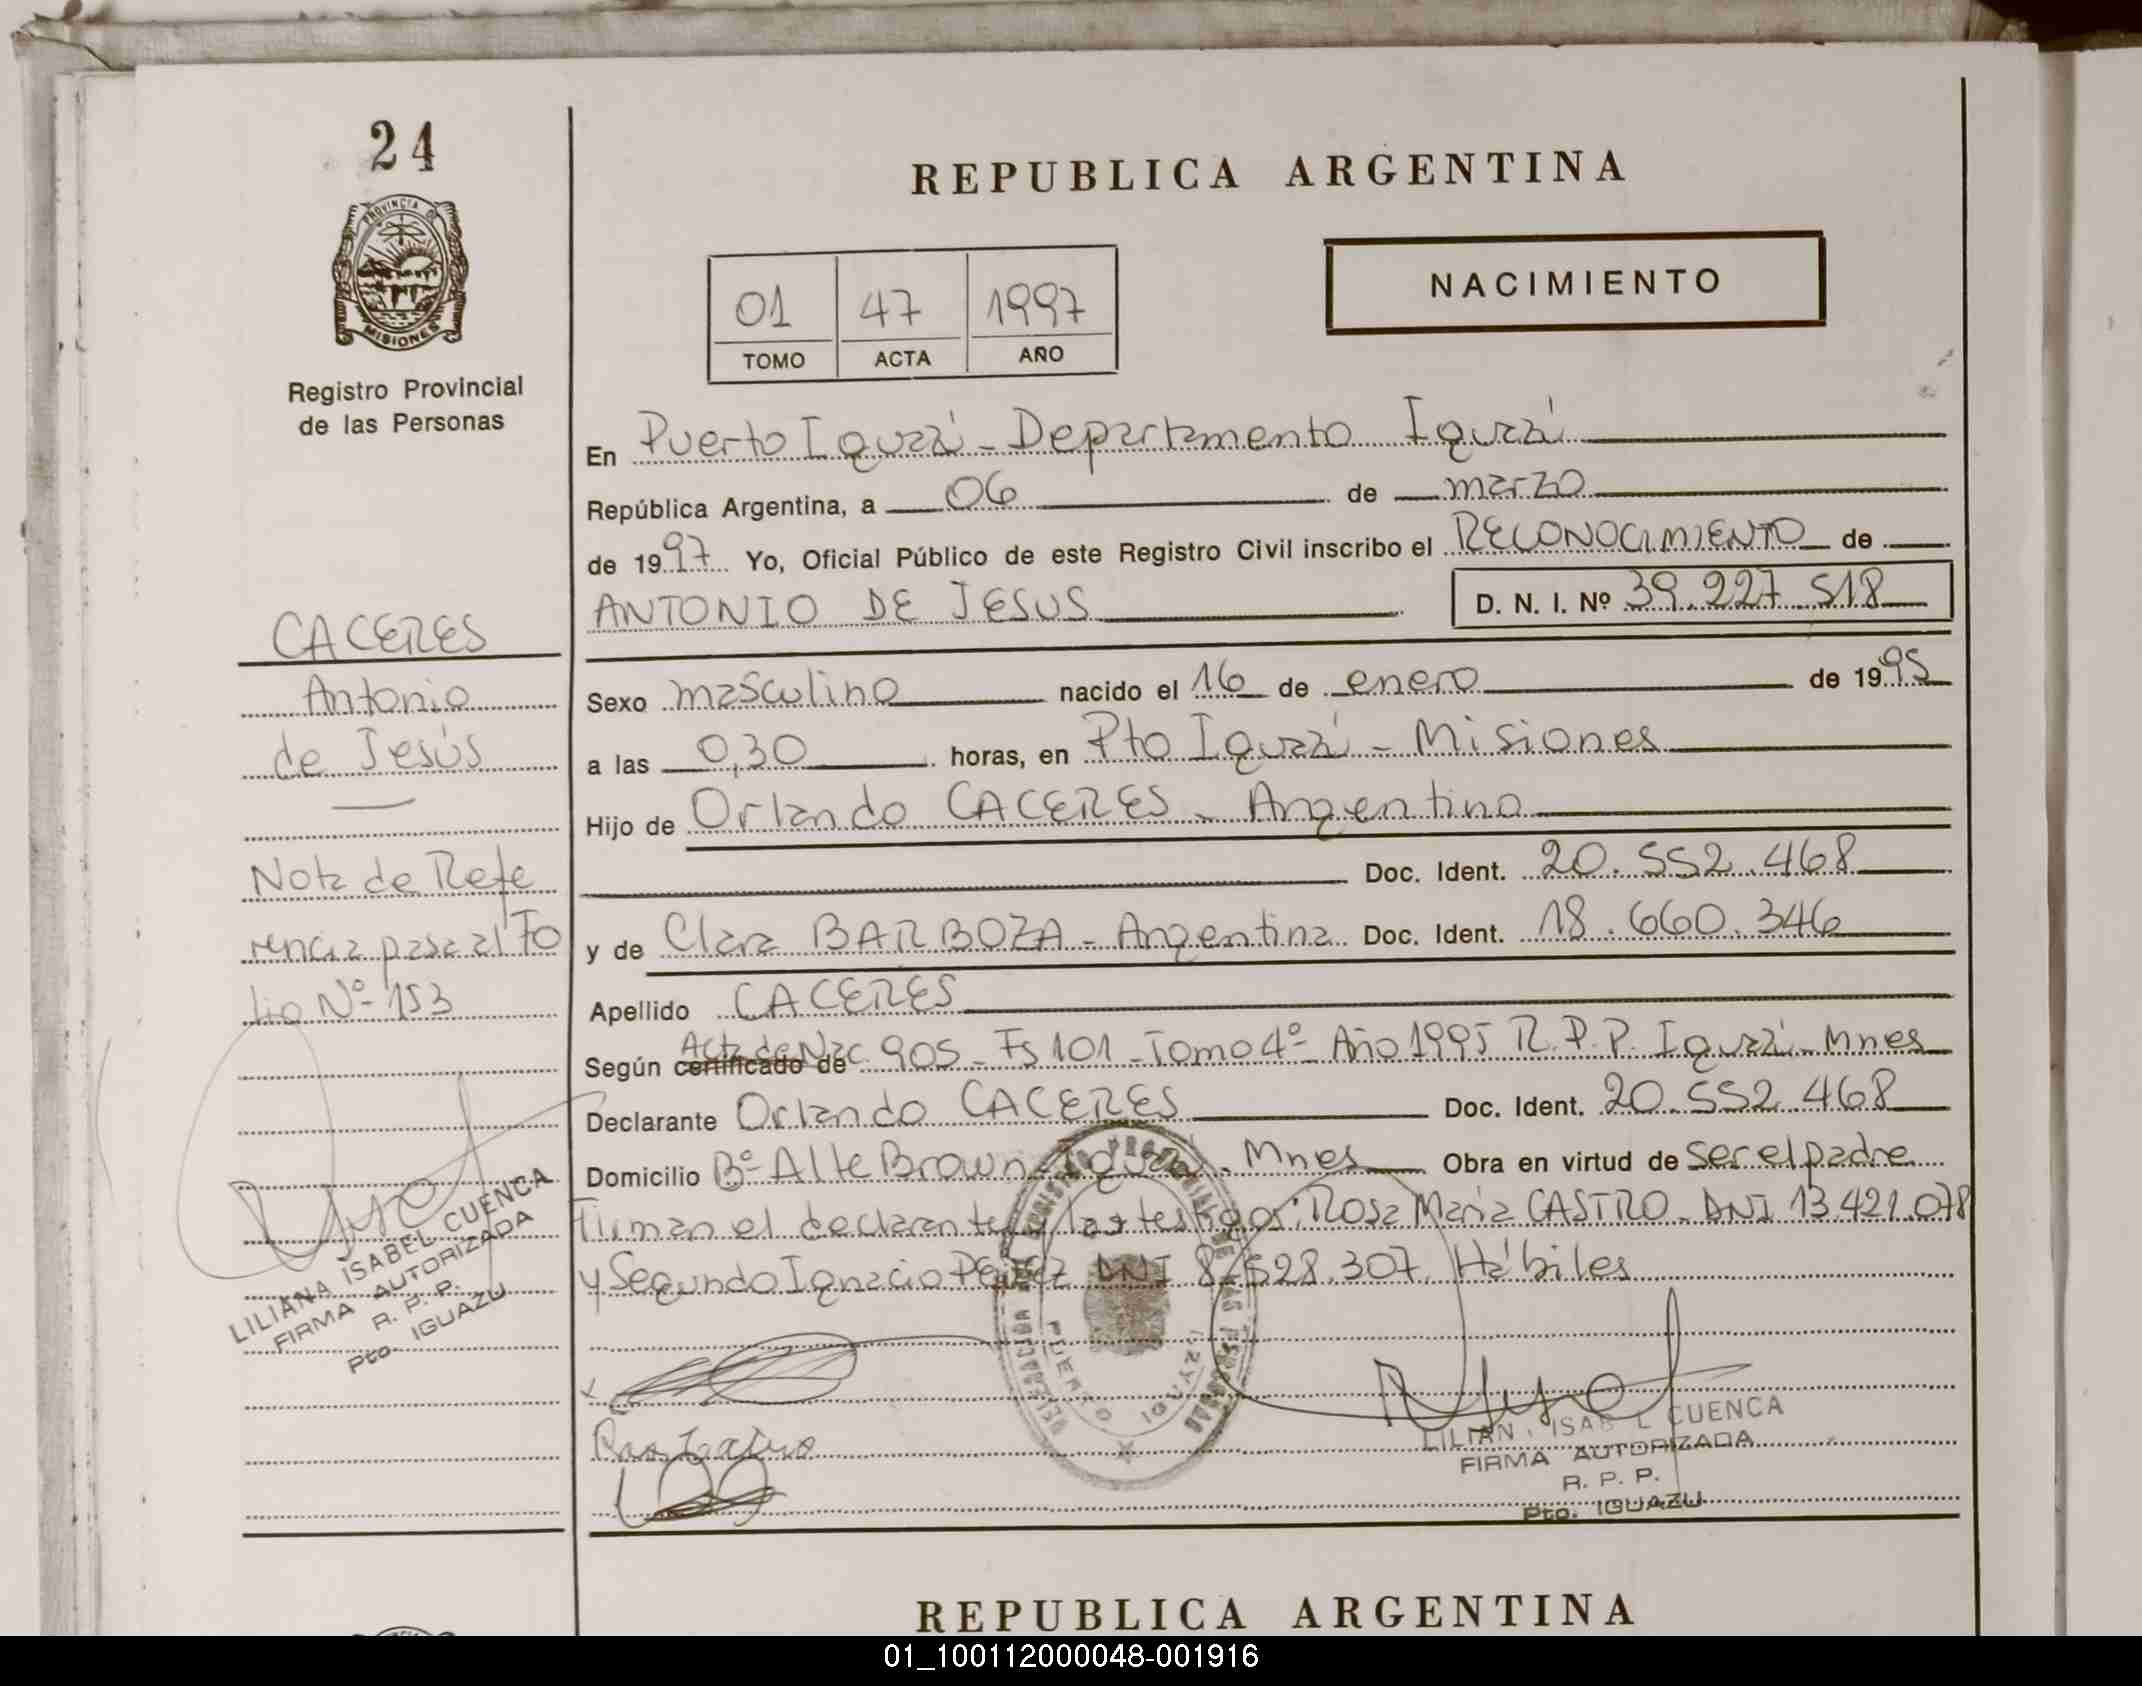 24
REPUBLICA ARGENTINA
PROVINCIA DE
MISIONES
Registro Provincial
de las Personas
NACIMIENTO
01 47 1997
TOMO ACTA AÑO
En Puerto Iguazú - Departamento Iguazú
República Argentina, a 06 de marzo
de 1997 Yo, Oficial Público de este Registro Civil inscribo el RECONOCIMIENTO de
ANTONIO DE JESUS D. N. I. Nº 39.227.518
CACERES
Antonio
de Jesús
Sexo masculino nacido el 16 de enero de 1995
a las 0,30 horas, en Pto Iguazú - Misiones
Hijo de Orlando CACERES - Argentino
Doc. Ident. 20.552.468
y de Clara BARBOZA - Argentina Doc. Ident. 18.660.346
Nota de Refe
rencia pasa al Fo
lio Nº 153
Apellido CACERES
Según certificado de Acta de Nac. 905 - Fs 101 - Tomo 4º - Año 1995 R.P.P. Iguazú - Mnes
Declarante Orlando CACERES Doc. Ident. 20.552.468
Domicilio Bº Alte Brown - Iguazú - Mnes Obra en virtud de ser el padre
Firman el declarante y los testigos: Rosa Maria CASTRO - DNI 13.421.078
y Segundo Ignacio DNI 8.528.307. Hábiles
LILIANA ISABEL CUENCA
FIRMA AUTORIZADA
R. P. P.
Pto. IGUAZU
LILIAN ISAB L CUENCA
FIRMA AUTORIZADA
R. P. P.
Pto. IGUAZU
REPUBLICA ARGENTINA
01_100112000048-001916